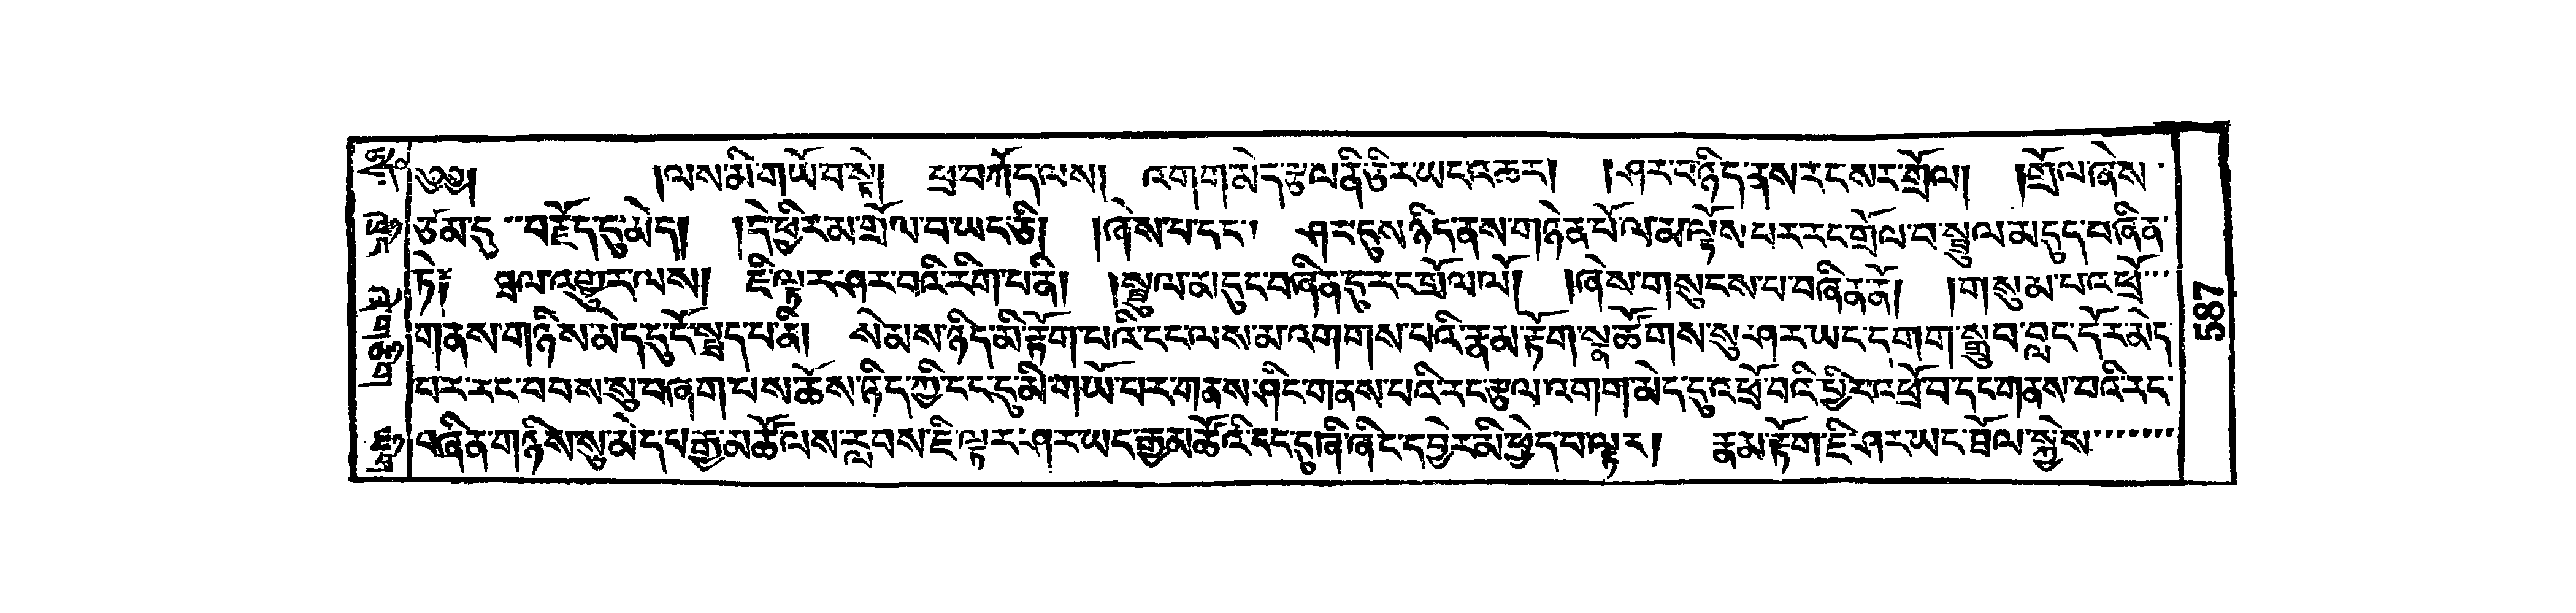 ༄༅། །ལས་མི་གཡོ་བ་སྟེ། ཕྲ་བཀོད་ལས། འགག་མེད་རྩལ་ནི་ཅིར་ཡང་འཆར། །ཤར་བ་ཉིད་ནས་རང་སར་གྲོལ། །གྲོལ་ཞེས་
ཙམ་དུ་བརྗོད་དུ་མེད། །དེ་ཕྱིར་མ་གྲོལ་བ་ཡང་ཅི། །ཞེས་པ་དང་། ཤར་དུས་ཉིད་ནས་གཉེན་པོ་ལ་མ་ལྟོས་པར་རང་གྲོལ་བ་སྦྲུལ་མདུད་བཞིན་
ཏེ༔ ཐལ་འགྱུར་ལས། ཇི་ལྟར་ཤར་བའི་རིག་པ་ནི། །སྦྲུལ་མདུད་བཞིན་དུ་རང་གྲོལ་ལོ། །ཞེས་གསུངས་པ་བཞིན་ནོ། །གསུམ་པ་འཕྲོ་
གནས་གཉིས་མེད་དུ་ངོ་སྤྲད་པ་ནི། སེམས་ཉིད་མི་རྟོག་པའི་ངང་ལས་མ་འགགས་པའི་རྣམ་རྟོག་སྣ་ཚོགས་སུ་ཤར་ཡང་དགག་སྒྲུབ་བླང་དོར་མེད་
པར་རང་བབས་སུ་བཞག་པས་ཆོས་ཉིད་ཀྱི་ངང་དུ་མི་གཡོ་བར་གནས་ཤིང་གནས་པའི་རང་རྩལ་འགག་མེད་དུ་འཕྲོ་བའི་ཕྱིར་འཕྲོ་བ་དང་གནས་པའི་རང་
བཞིན་གཉིས་སུ་མེད་པ་རྒྱ་མཚོ་ལས་རླབས་ཇི་ལྟར་ཤར་ཡང་རྒྱ་མཚོའི་ངང་དུ་ཞི་ཞིང་དབྱེར་མི་ཕྱེད་པ་ལྟར། རྣམ་རྟོག་ཇི་ཤར་ཡང་ཐོལ་སྐྱེས་